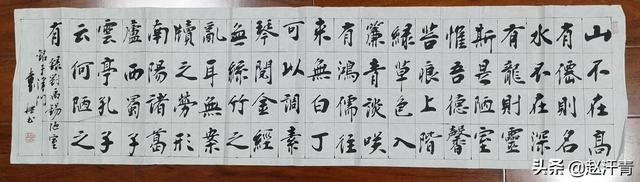 山不在高
有僊則名
水不在深
有龍則靈
斯是陋室
惟吾德馨
苔痕上階
綠草色入
簾青談咲
有鴻儒往
来無白丁
可以調素
琴閱金經
無絲竹之
亂耳無案
牘之勞形
南陽諸葛
廬西蜀子
雲亭孔子
云何陋之
有
錄劉禹錫陋室
銘於津門
書
头条 @赵汗青